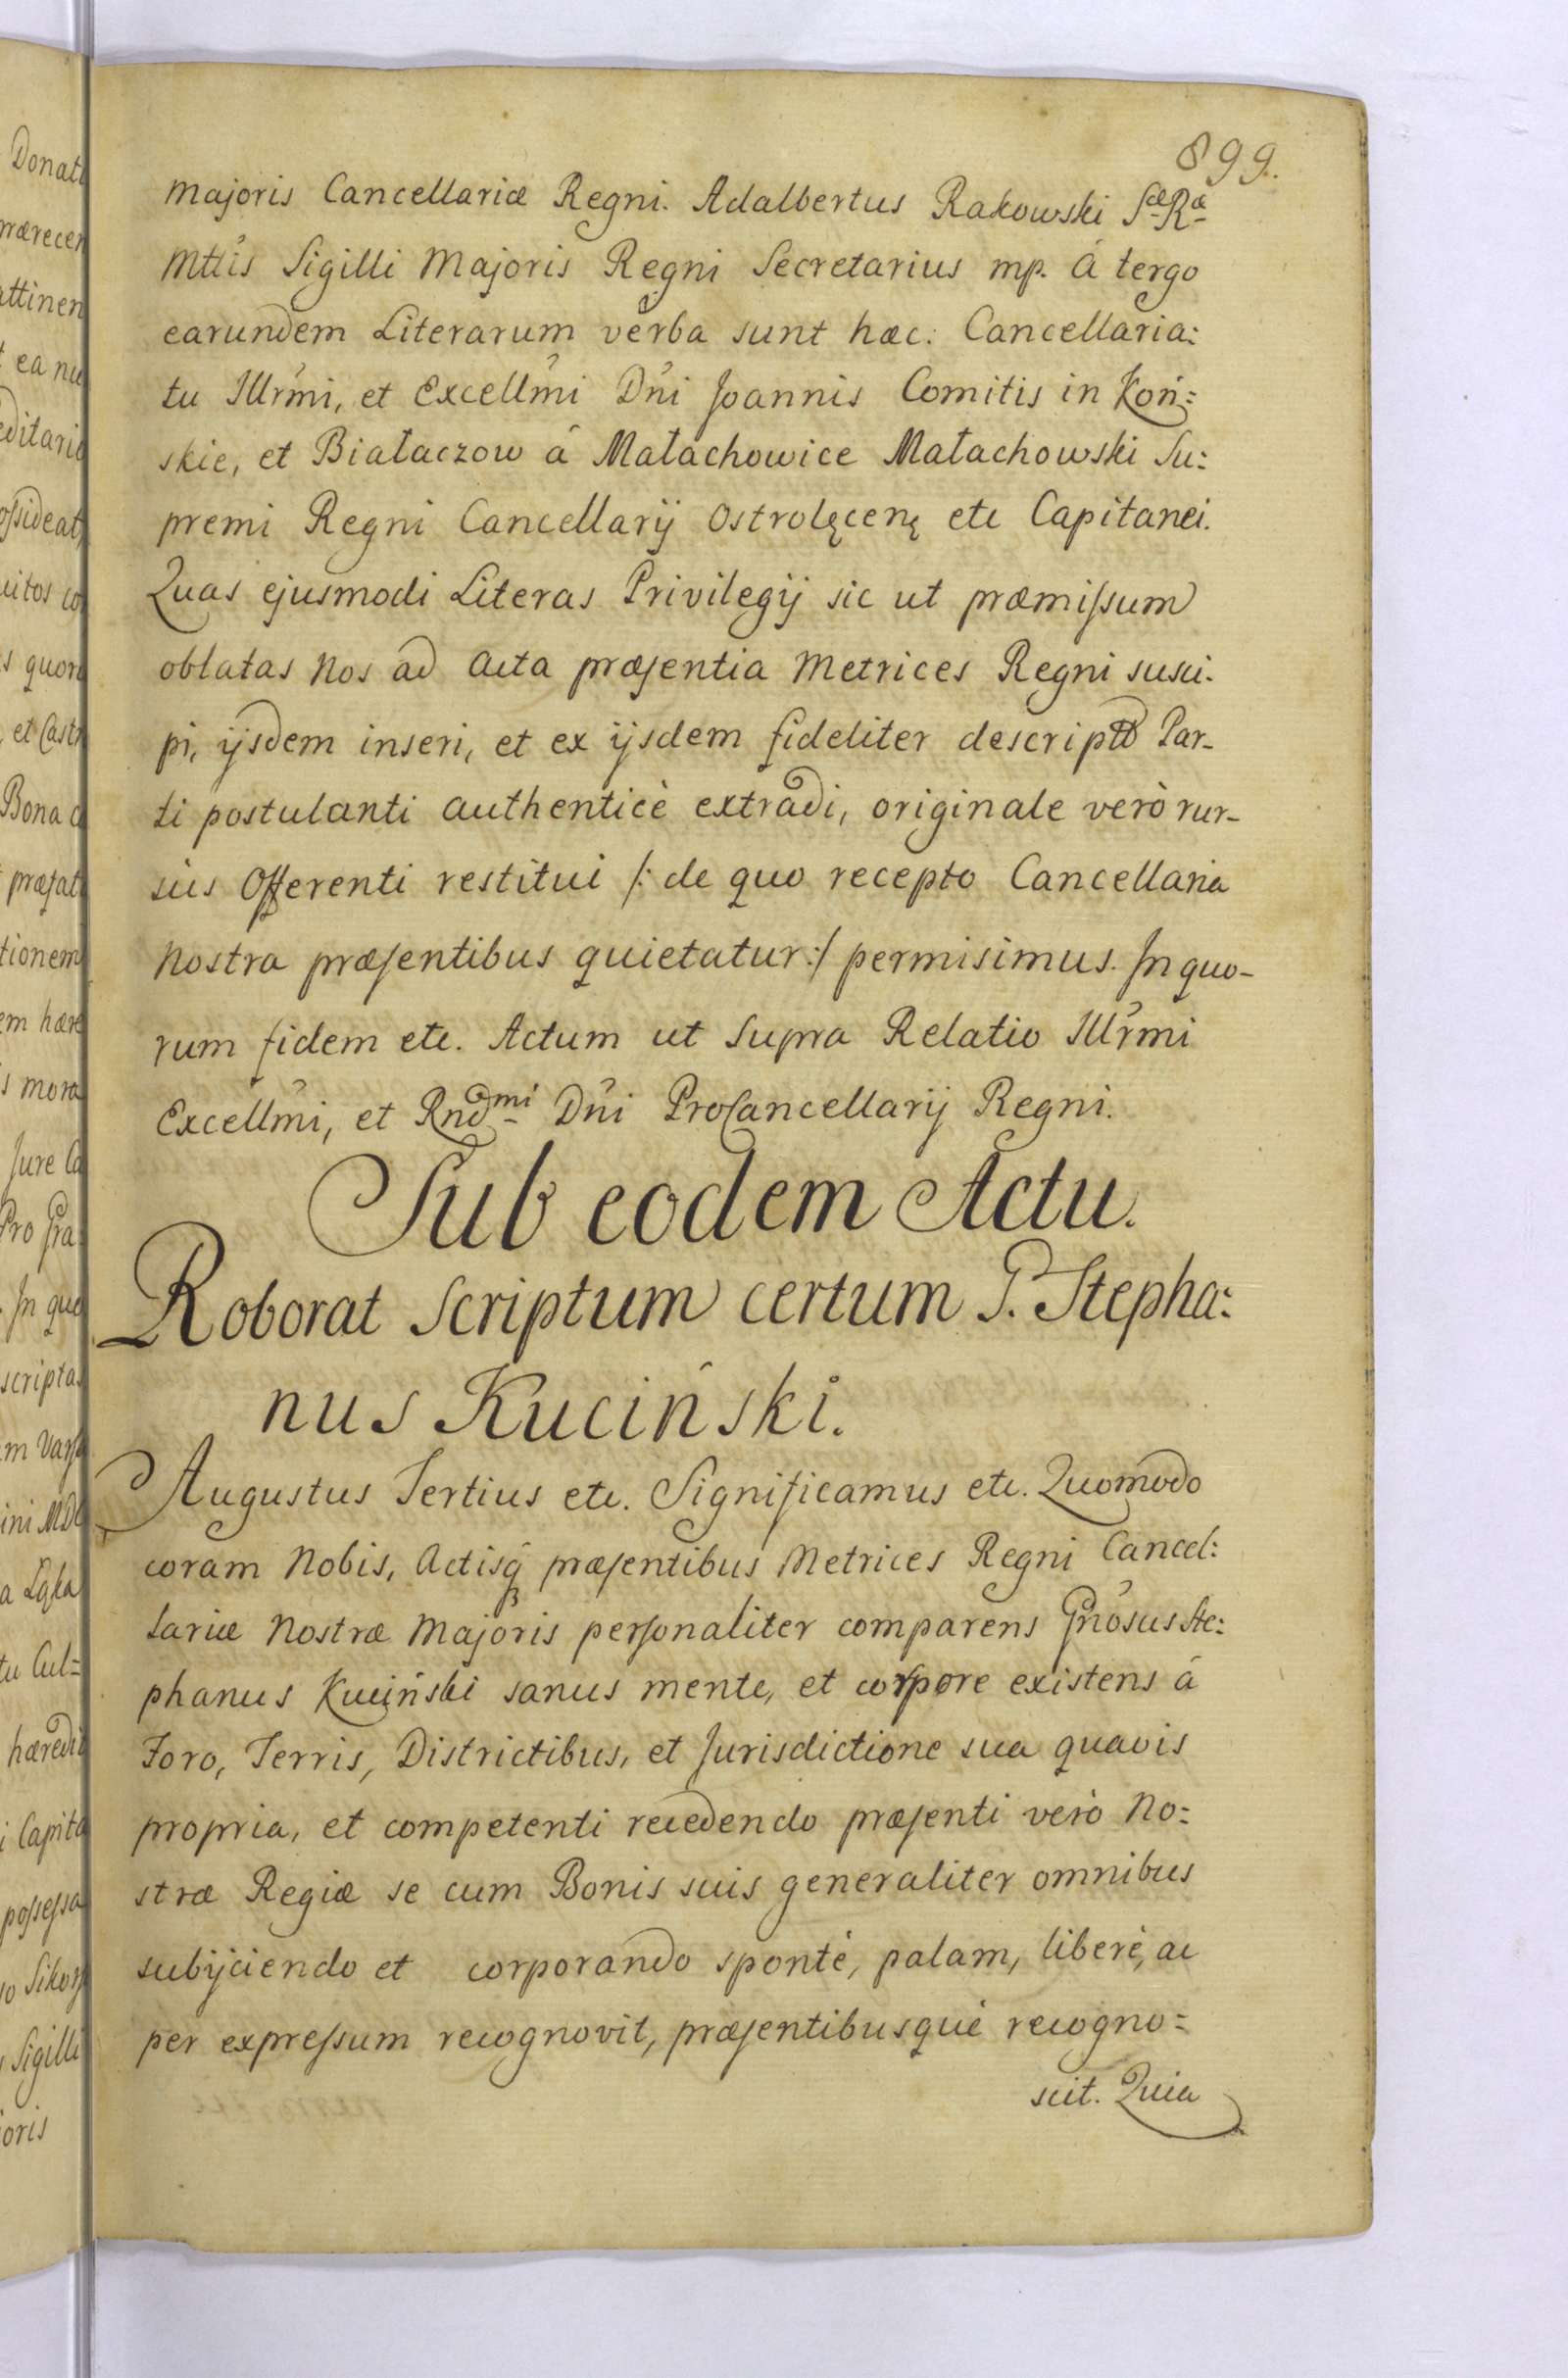 899.
majoris Cancellariæ Regni. Adalbertus Rakowski Sæ Ræ
Mttis Sigilli Majoris Regni Secretarius mp. á tergo
earundem Literarum verba sunt hæc: Cancellaria:
tu Illrmi, et Excellmi Dni Joannis Comitis in Koń:
skie, et Białaczow á Małachowice Małachowski Su:
premi Regni Cancellarij Ostrolęcenę etc Capitanei.
Quas ejusmodi Literas Privilegij sic ut præmissum
oblatas Nos ad Acta præsentia Metrices Regni susci-
pi, ijsdem inseri, et ex ijsdem fideliter descriptò Par-
ti postulanti authenticè extradi, originale verò rur-
sus Offerenti restitui /: de quo recepto Cancellaria
nostra præsentibus quietatur :/ permisimus. In quo-
rum fidem etc. Actum ut Supra Relatio Illrmi
Excellmi, et Rndmi Dni ProCancellarij Regni.
Sub eodem Actu.
Roborat Scriptum certum G. Stepha:
nus Kuciński.
Augustus Tertius etc. Significamus etc. Quomodo
coram Nobis, Actisq præsentibus Metrices Regni Cancel:
lariæ Nostræ Majoris personaliter comparens Gnosus Ste:
phanus Kuciński sanus mente, et corpore existens á
Foro, Terris, Districtibus, et Jurisdictione sua quavis
propria, et competenti recedendo præsenti verò No:
stræ Regiæ se cum Bonis suis generaliter omnibus
subijciendo et corporando spontè, palam, liberè, ac
per expressum recognovit, præsentibusquè recogno:
scit. Quia